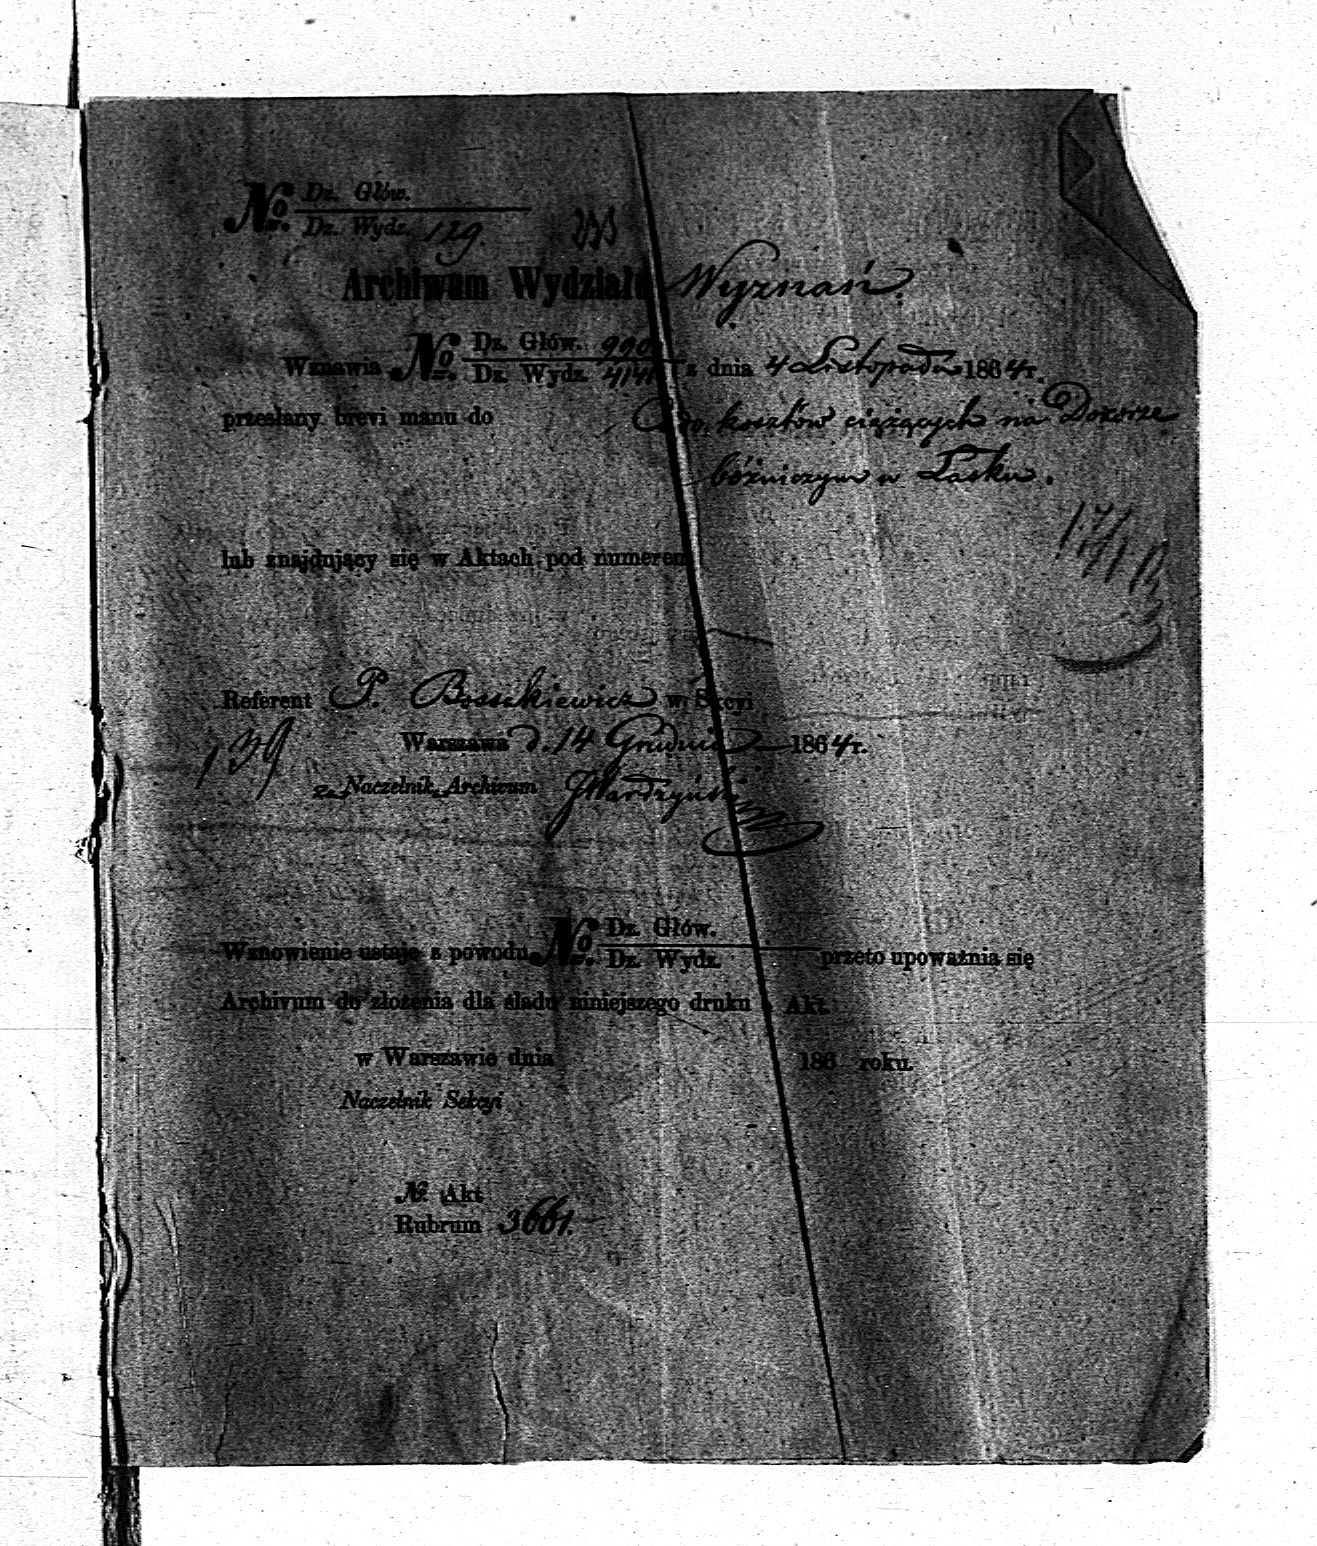 No. Dz. Głów.
Dz. Wydz. 129.
Archiwum Wydziału Wyznań.
Wznawia No. Dz. Głów. 990 z dnia 4 Listopada 1864 r.
Dz. Wydz. 4141
przesłany brevi manu do kosztów ciążących na Dozorze
bóżniczym w Łasku.
lub znajdujący się w Aktach pod numerem
Referent P. w Sekcyi
139 Warszawa d. 14 Grudnia 1864 r.
Naczelnik Archivum
Wznowienie ustaje z powodu No. Dz. Głów. przeto upoważnia się
Dz. Wydz.
Archivum do złożenia dla śladu niniejszego druku Akt.
w Warszawie dnia 186 roku.
Naczelnik Sekcyi
No. Akt
Rubrum 3661.